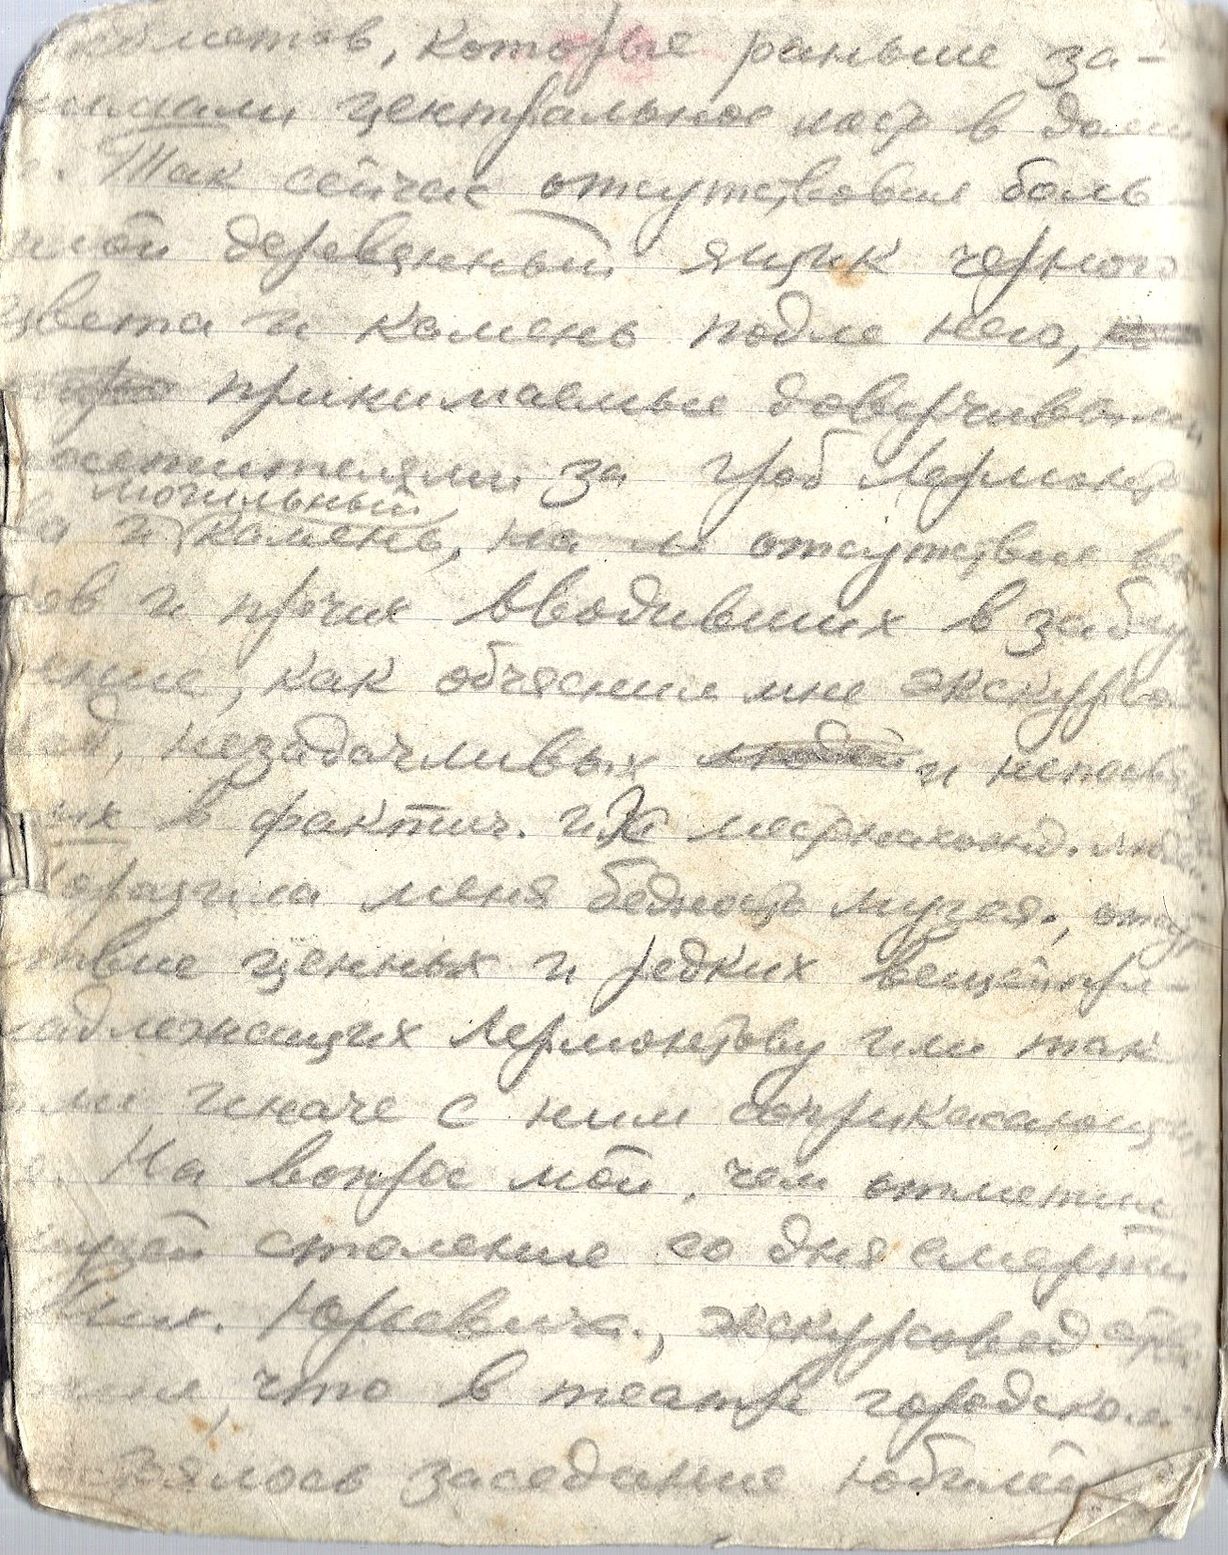 которые раньше за-
нимали центральное место в доми
Так сейчас отсутствовал боль
шой деревянный ящик черного
цвета и камень подле него,
принимаемые доверчивыми
посетителями за гроб Лермонто
ва и могильный камень, отсутствие
и прочих вводивших в заблуж
ение, как объяснил мне экскурсо
вод, незадачливых людей и непосвя
их в фактич. их местнахожд. людей.
Поразила меня бедность музея, отсут
ствие ценных и редких вещей при-
надлежащих Лермонтову или так
или иначе с ним соприкасающи
я. На вопрос мой, чем отметил
музей столение со дня смерти
Мих. Юрьевича, экскурсовод отве
тил, что в театре городском
заседание юбилей